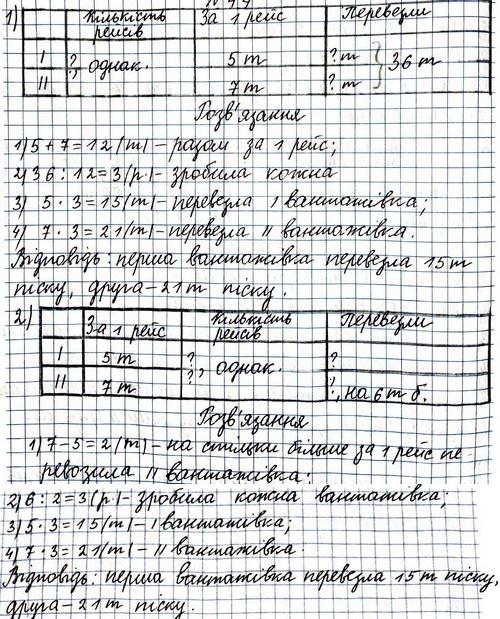 1) Кількість рейсів За 1 рейс Перевезли
I ?, однак. 5 т ? т } 36 т
II 7 т ? т
Розв'язання
1) 5 + 7 = 12 (т) – разом за 1 рейс;
2) 36 : 12 = 3 (р.) – зробила кожна
3) 5 · 3 = 15 (т) – перевезла I вантажівка;
4) 7 · 3 = 21 (т) – перевезла II вантажівка.
Відповідь: перша вантажівка перевезла 15 т
піску, друга – 21 т піску.
2) За 1 рейс Кількість рейсів Перевезли
I 5 т ?, однак. ?
II 7 т ? ?, на 6 т б.
Розв'язання
1) 7 – 5 = 2 (т) – на стільки більше за 1 рейс пе-
ревозила II вантажівка.
2) 6 : 2 = 3 (р) – зробила кожна вантажівка;
3) 5 · 3 = 15 (т) – I вантажівка;
4) 7 · 3 = 21 (т) – II вантажівка.
Відповідь: перша вантажівка перевезла 15 т піску,
друга – 21 т піску.